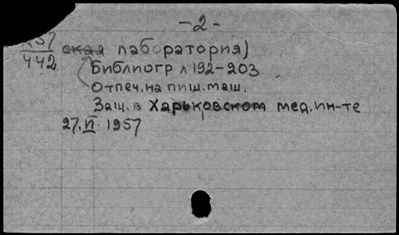 -2-
ская лаборатория)
442
Библиогр л 192-203
Отпеч. на пиш. маш.
Защ. в Харьковском мед. ин-те
27.VI 1957